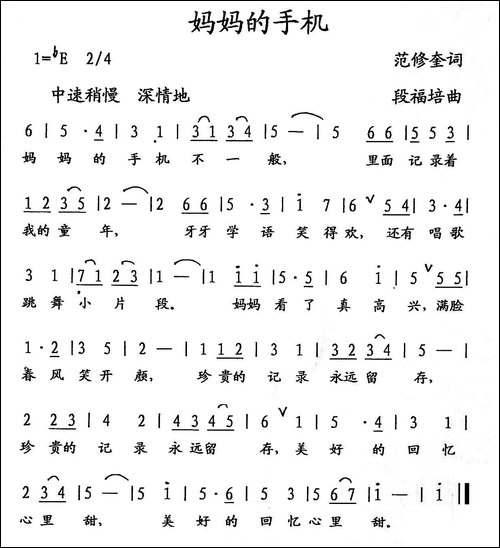 妈妈的手机
1=♭E 2/4 范修奎词
中速稍慢 深情地 段福培曲
6 | 5 · 4 | 3 1 | 3 1 3 4 | 5 — | 5 6 6 | 5 5 3 |
妈 妈 的 手 机 不 一 般， 里面 记 录着
1 2 3 5 | 2 — | 2 6 6 | 5 · 3 | i 7 | 6 ∨ 5 4 | 3 · 4 |
我的 童 年， 牙牙 学 语 笑 得 欢，还有 唱 歌
3 1 | 7 1 2 3 | 1 — | 1 i i | 5 · 5 | 6 i | 5 ∨ 5 5 |
跳 舞 小 片 段。 妈妈 看 了 真 高 兴，满脸
1 · 2 | 3 5 | 2 — | 1 1 2 | 3 1 | 3 2 3 4 | 5 — |
春 风 笑 开 颜， 珍 贵的 记 录 永远 留 存，
2 2 3 | 4 2 | 4 3 4 5 | 6 ∨ 1 | 5 · 4 | 3 1 |
珍 贵的 记 录 永 远留 存，美 好 的 回 忆
2 3 4 | 5 — | 5 i | 5 · 6 | 5 3 | 5 6 7 | i — | i — ‖
心 里 甜， 美 好 的 回 忆 心 里 甜。